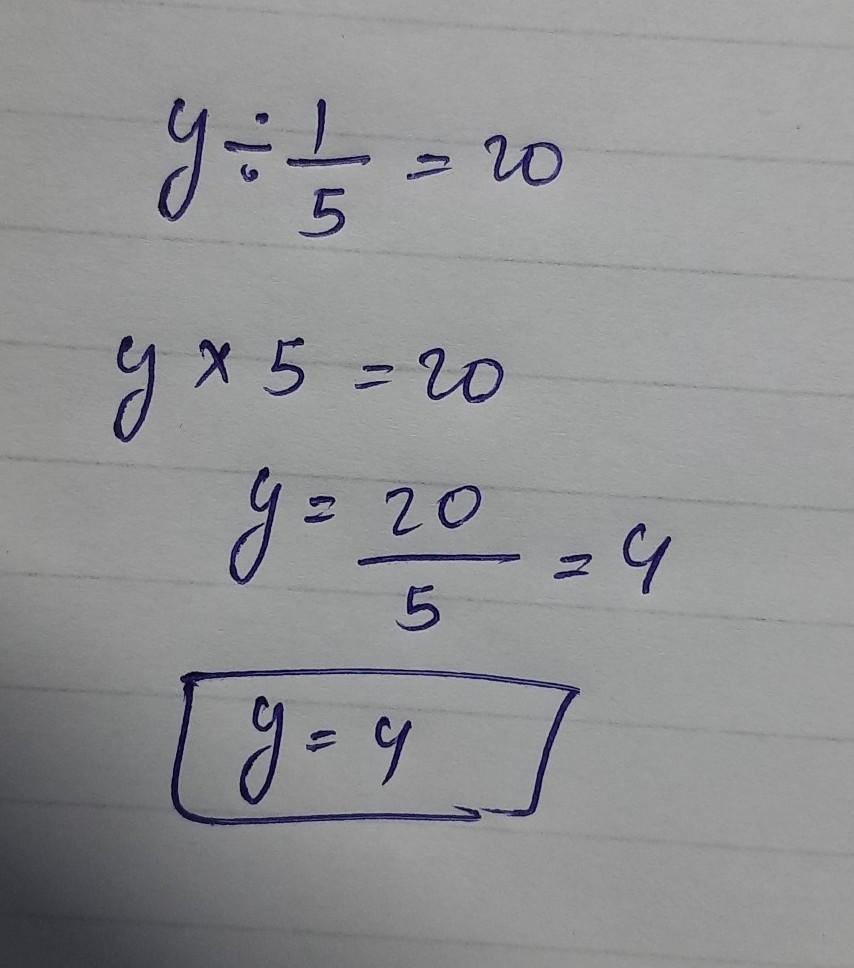 y ÷ 1/5 = 20
y × 5 = 20
y = 20/5 = 4
y = 4